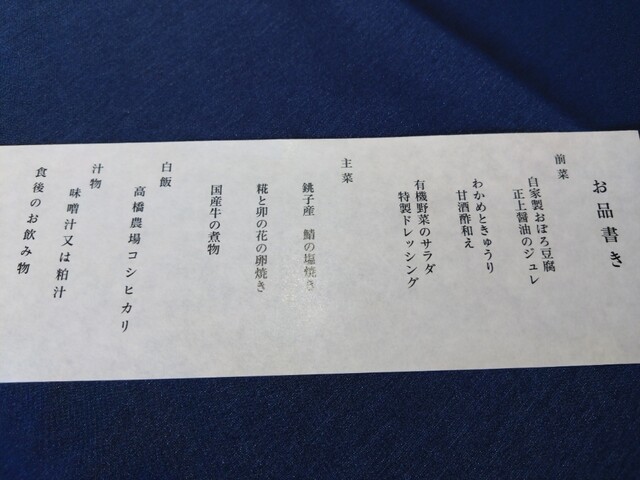 お品書き
前菜
自家製おぼろ豆腐
正上醤油のジュレ
わかめときゅうり
甘酒酢和え
有機野菜のサラダ
特製ドレッシング
主菜
銚子産 鯖の塩焼き
糀と卯の花の卵焼き
国産牛の煮物
白飯
高橋農場コシヒカリ
汁物
味噌汁又は粕汁
食後のお飲み物